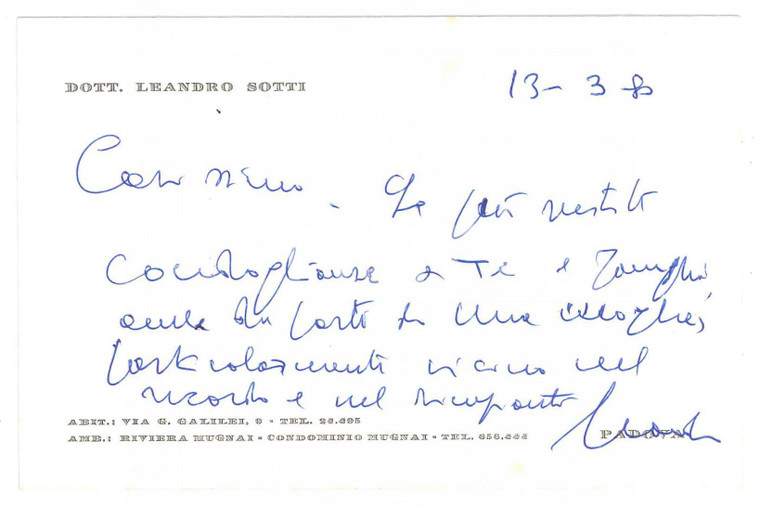 DOTT. LEANDRO SOTTI
13-3-80
Caro Nino. Le più sentite
condoglianze a Te e famiglia
anche da parte di mia moglie,
particolarmente vicino nel
ricordo e nel rimpianto
ABIT.: VIA G. GALILEI, 9 - TEL. 26.695
AMB.: RIVIERA MUGNAI - CONDOMINIO MUGNAI - TEL. 656.666
PADOVA